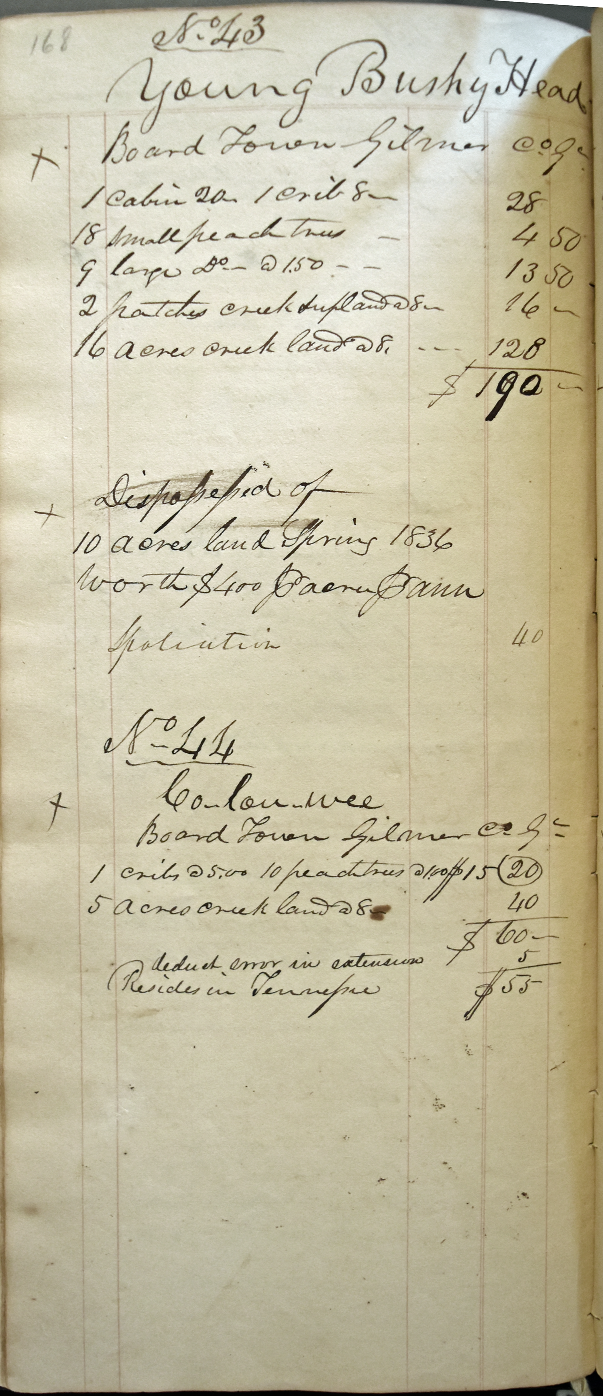 168
No. 43
Young Bushy Head
x Board Town Gilmer Co. Ga
1 cabin 20 1 crib 8 — 28
18 small peach trees — 4 50
9 large Do — @ 1.50 - - 13 50
2 patches creek & upland @ 8 — 16 —
16 acres creek land @ 8. --- 128
$ 190 —
x Dispossessed of
10 acres land Spring 1836
worth $4 00 P acre P ann
Spoliation 40
No. 44
x Co-lou-wee
Board Town Gilmer Co. Ga
1 cribs @ 5.00 10 peach trees @ 1.00 $15 20
5 acres creek land @ 8 40
$ 60 —
deduct error in extension 5
Resides in Tennessee $55